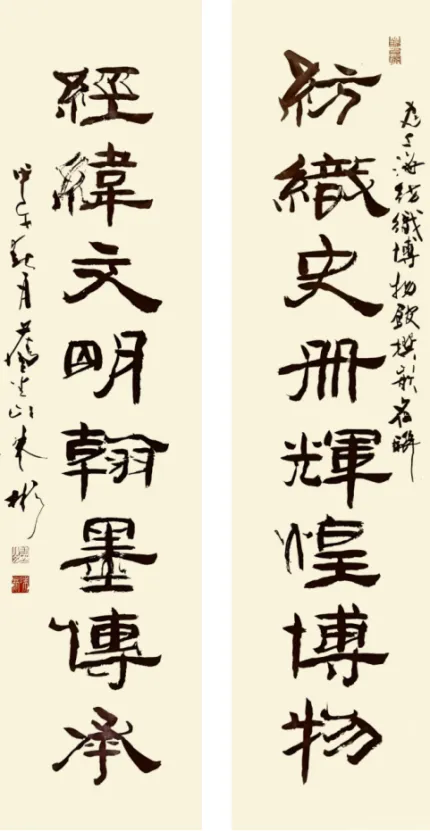 為上海紡織博物館撰嵌名聯
紡織史册輝煌博物
經緯文明翰墨傳承
甲午秋月